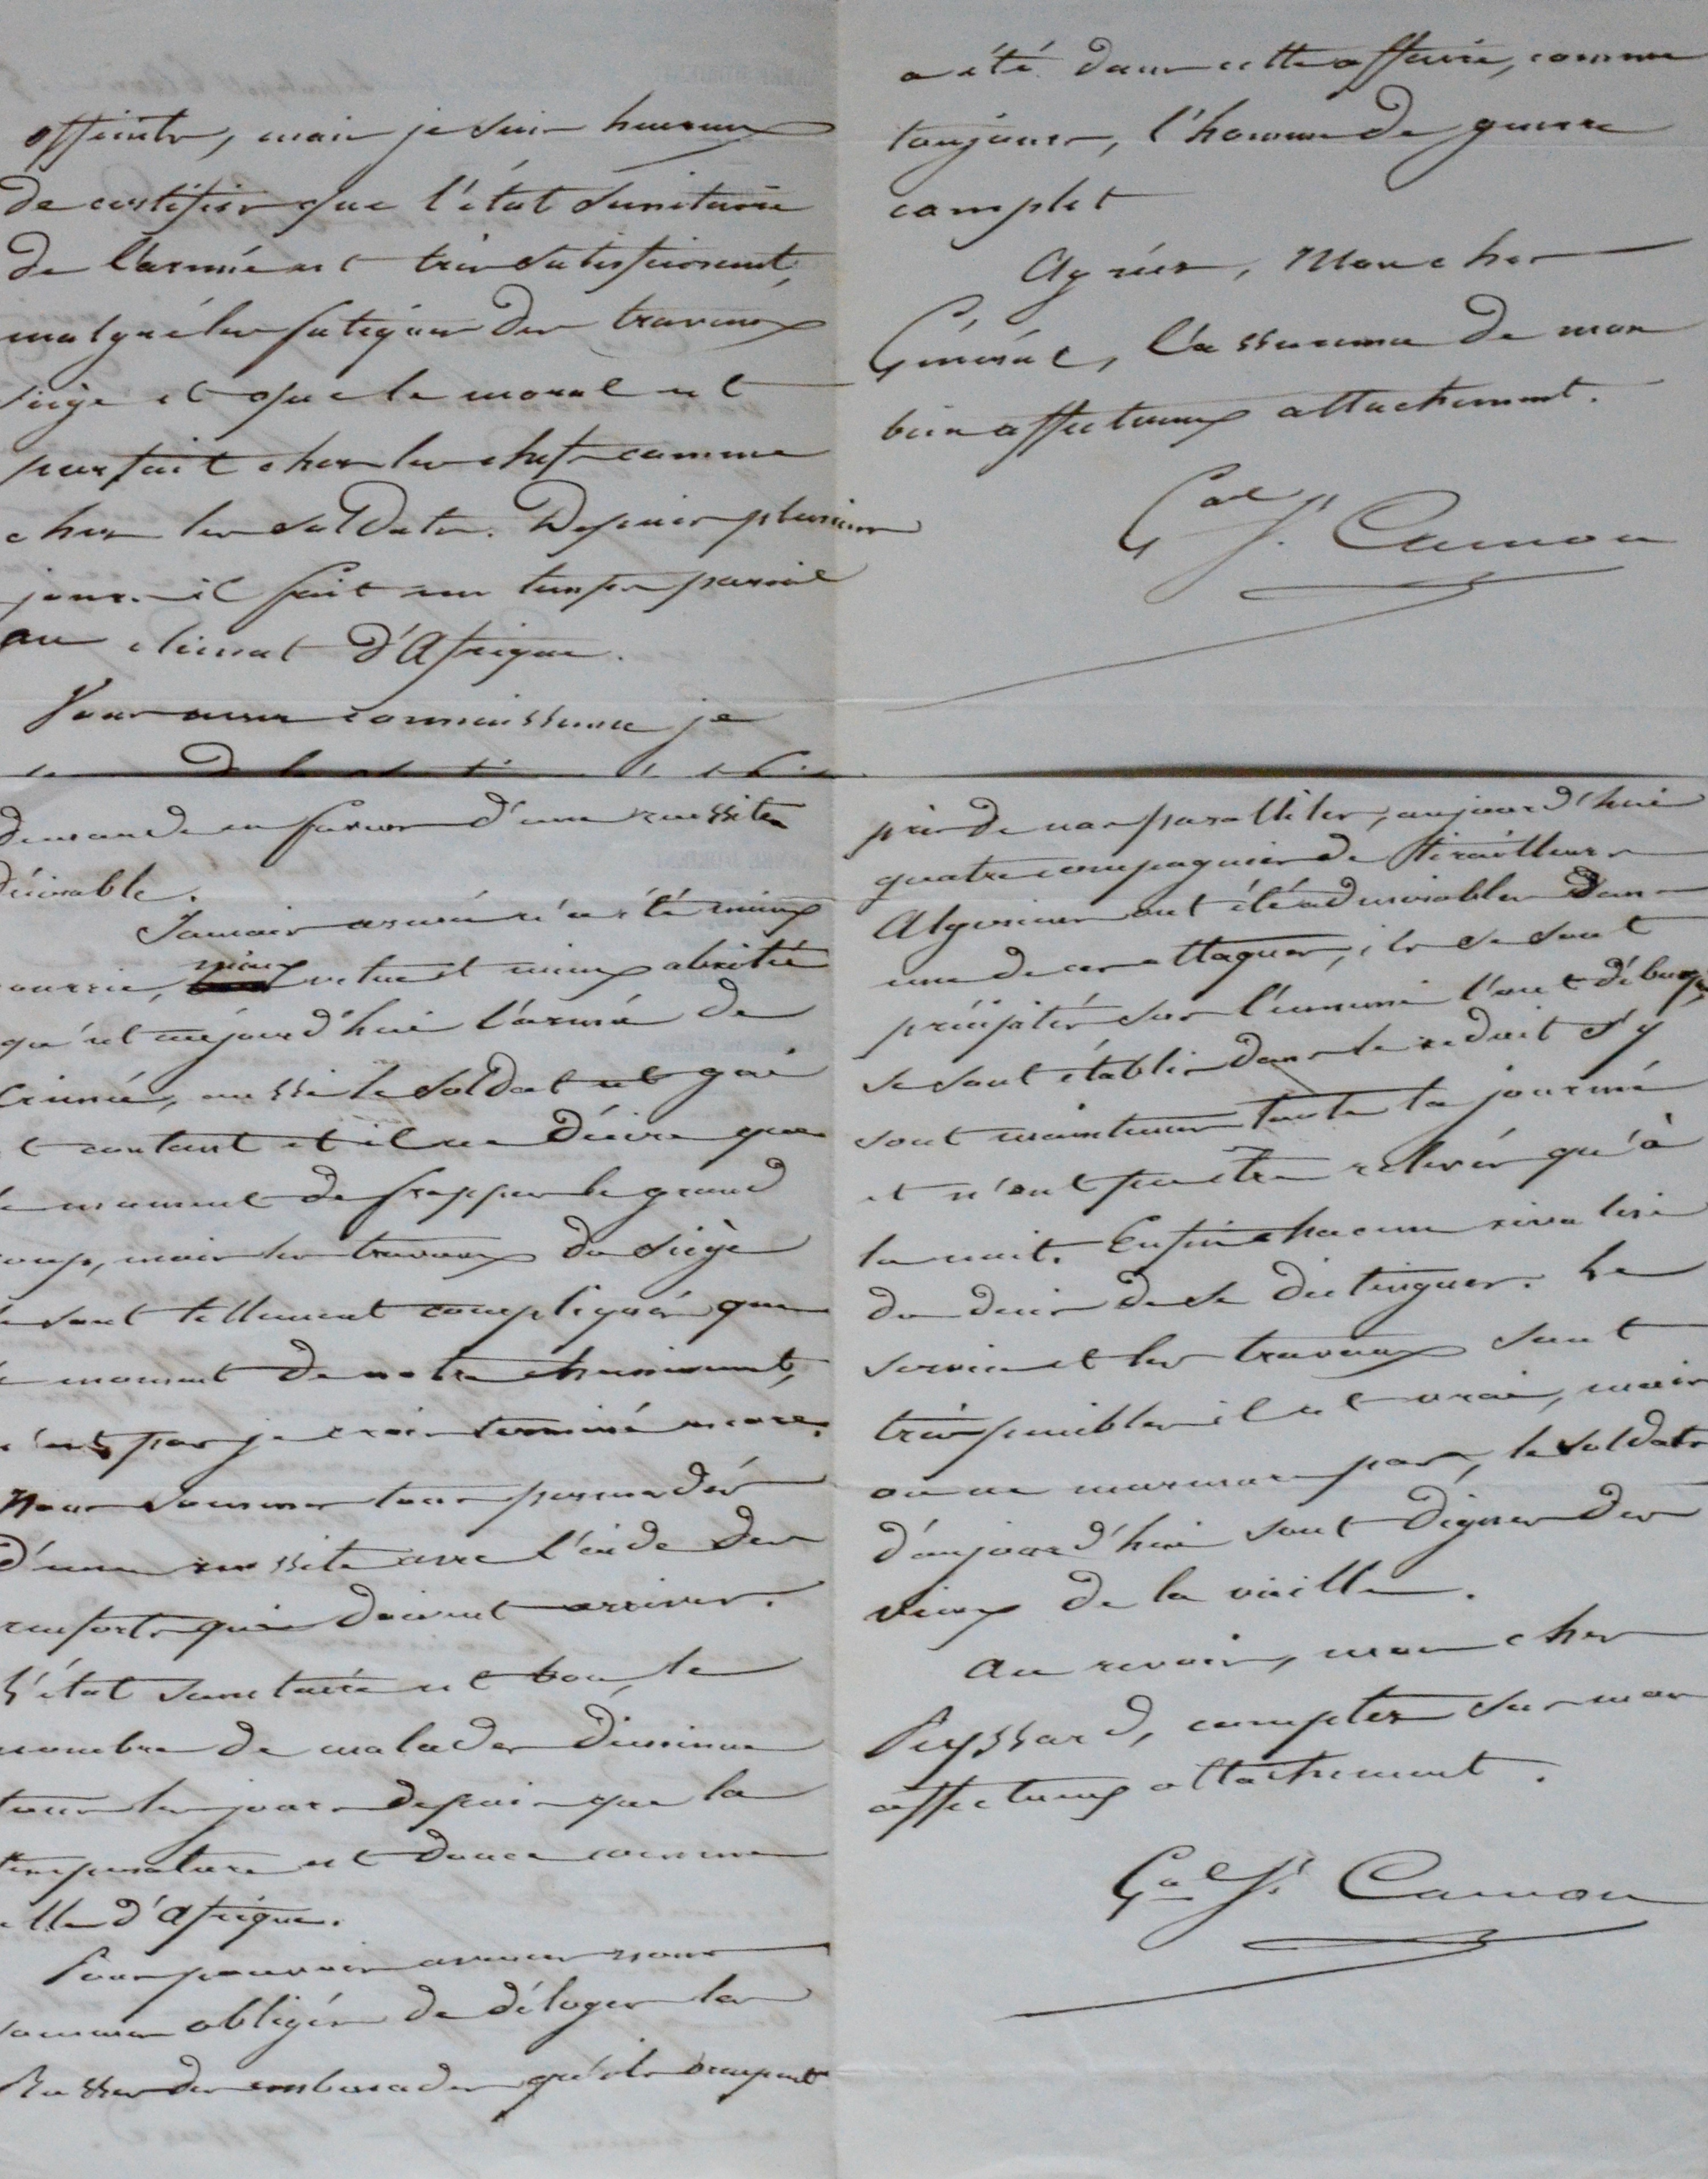 atteints, mais je suis heureux
de certifier que l'état sanitaire
de l'armée est très satisfaisant,
malgré les fatigues des travaux
siège et que le moral est
parfait chez les chefs comme
chez les soldats. Depuis plusieurs
jours il fait un temps pareil
au climat d'Afrique.
connaissance je
a été dans cette affaire, comme
toujours, l'homme de guerre
complet
Agréez, Mon cher
Général, l'assurance de mon
bien affectueux attachement.
Gal J. Camou
demande en faveur d'une réussite
désirable.
Jamais armée n'a été mieux
ourrie, mieux vetue et mieux abritée
qu'est aujourd'hui l'armée de
Crimée, aussi le soldat est gai
et contant et il ne désire que
le moment de frapper le grand
coup, mais les travaux du siège
se sont tellement compliqués que
le moment de notre cheminement,
n'est pas je crois terminé encore.
Nous sommes tous persuadés
d'une réussite avec l'aide des
renforts qui doivent arriver.
L'état sanitaire est bon, le
nombre de malades diminue
tous les jours depuis que la
température est douce comme
elle d'Afrique.
Pour pouvoir avancer nous
sommes obligés de déloger les
Russes des embuscades qu'ils occupent
près de nos parallèles, aujourd'hui
quatre compagnies de tirailleurs
Algériens ont été admirables dans
une de ces attaques, ils se sont
précipités sur l'ennemi l'ont débusqué
se sont établis dans le réduit s'y
sont maintenus toute la journée
et n'ont pu être relevés qu'à
la nuit. Enfin chacun rivalise
du désir de se distinguer. Le
service et les travaux sont
très pénibles il est vrai, mais
on ne murmure pas, le soldats
d'aujourd'hui sont dignes des
vieux de la vieille.
Au revoir, mon cher
Peyssard, comptez sur mon
affectueux attachement.
Gal J. Camou